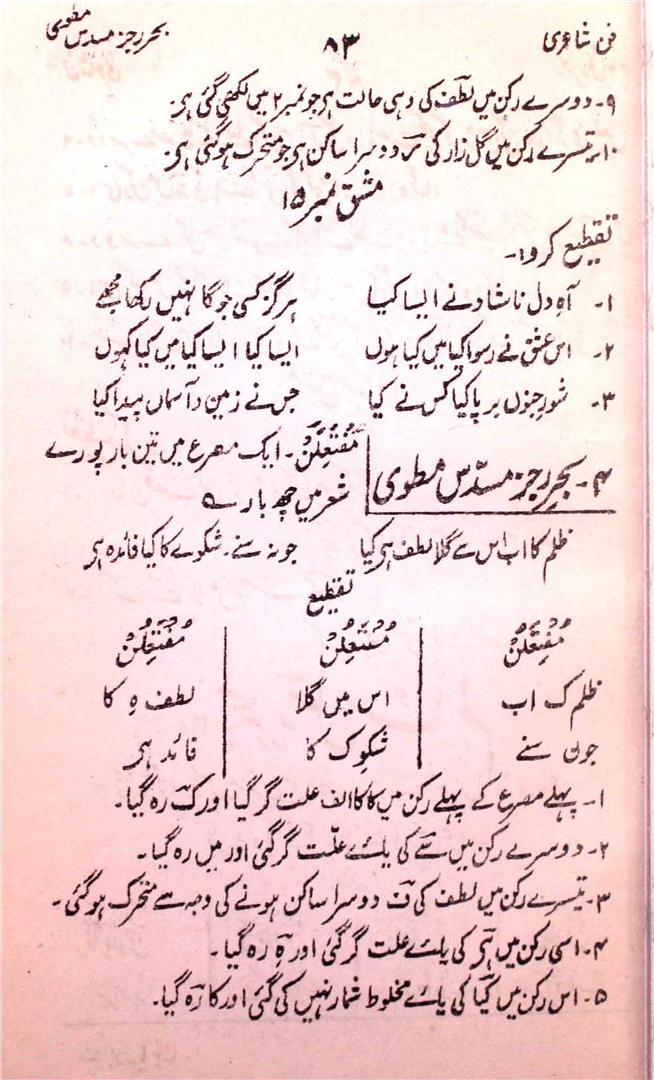 فن شاعری ۸۳ بحر رجز مسدس مطوی
۹۔ دوسرے رکن میں لطف کی وہی حالت ہر جو نمبر ۲ میں لکھی گئی ہر۔
۱۰۔ تیسرے رکن میں گل زار کی ر دوسرا ساکن ہر جو متحرک ہوگئی ہر۔
مشق نمبر ۱۵
تقطیع کرو:۔
۱۔ آہ دل ناشاد نے ایسا کیا ہرگز کسی جوگا نہیں رکھا مجھے
۲۔ اس عشق نے رسوا کیا میں کیا ہوں ایسا کیا ایسا کیا میں کیا کہوں
۳۔ شور جنوں برپا کیا کس نے کیا جس نے زمین و آسماں پیدا کیا
۴۔ بحر رجز مسدّس مطوی مُفْتَعِلُنْ۔ ایک مصرع میں تین بار پورے
شعر میں چھ بار ے
ظلم کا اب اس سے گلا لطف ہر کیا جو نہ سنے۔ شکوے کا کیا فائدہ ہر
تقطیع
مُفْتَعِلُنْ مُسْتَعِلُنْ مُفْتَعِلُنْ
ظلم ک اب اس میں گلا لطف ہِ کا
جون سنے شکوِک کا فائد ہر
۱۔ پہلے مصرع کے پہلے رکن میں کا کا الف علت گر گیا اور ک رہ گیا۔
۲۔ دوسرے رکن میں سے کی یائے علّت گر گئی اور میں رہ گیا۔
۳۔ تیسرے رکن میں لطف کی ف دوسرا ساکن ہونے کی وجہ سے متحرک ہوگئی۔
۴۔ اسی رکن میں ہر کی یائے علت گر گئی اور ہِ رہ گیا۔
۵۔ اس رکن میں کیا کی یائے مخلوط شمار نہیں کی گئی اور کا رہ گیا۔